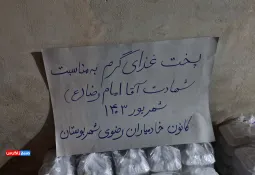 پخت غذای گرم بمناسبت
شهادت آقا امام رضا (ع)
شهریور ۱۴۰۳
کانون خادمیاران رضوی شهر بوستان